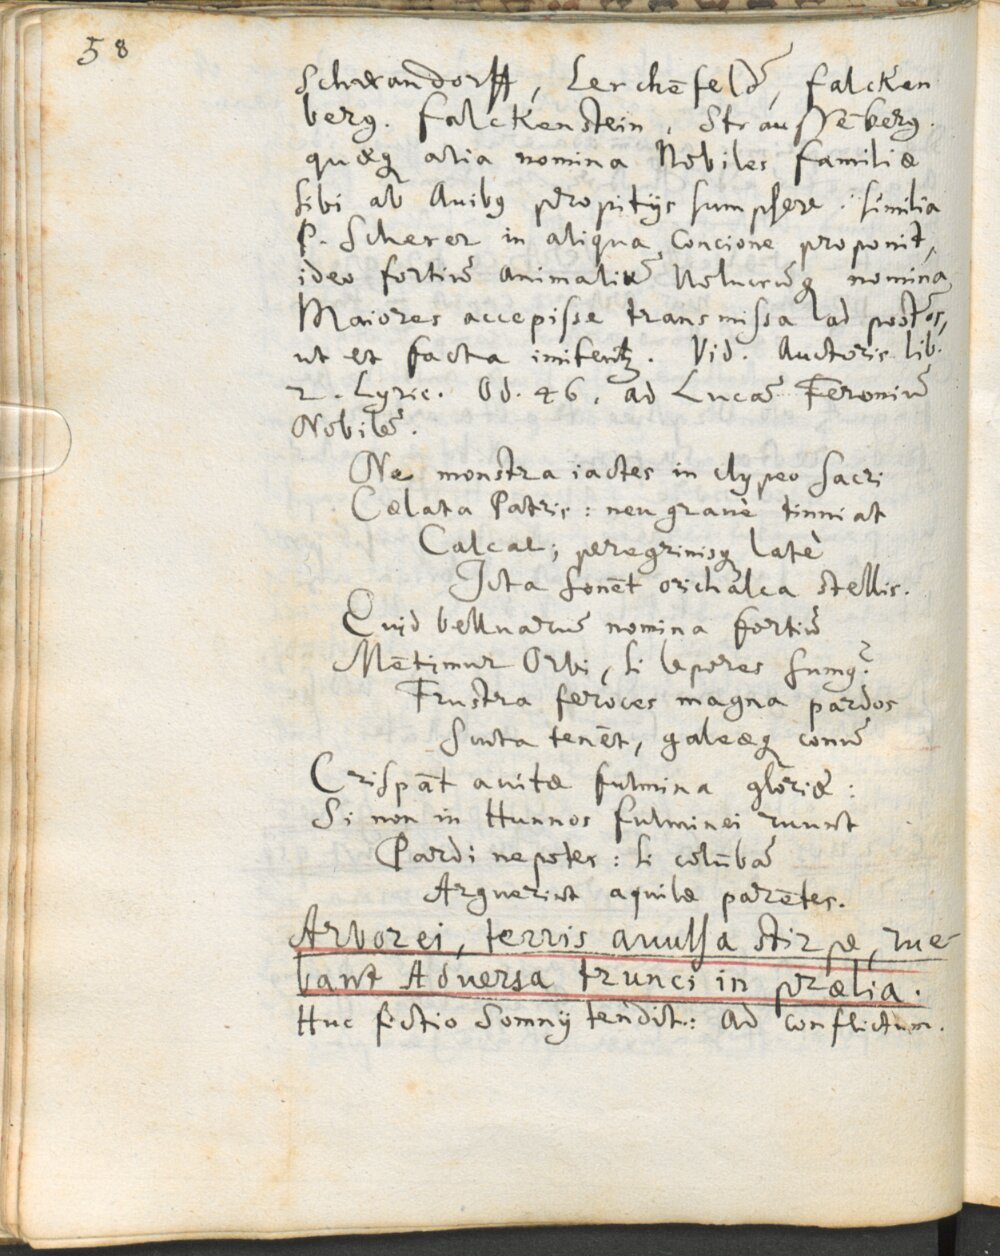 58
Schwandorff, Lerchēfeld, Falcken
berg. Falckenstein, Straussēberg.
quæq alia nomina Nobiles familiæ
sibi ab Auibq propitijs sumpsere. similia
P. Scherer in aliqua Concione proponit,
ideo fortiū Animaliū Volucrūq nomina
Maiores accepisse transmissa ad postos,
ut et facta imitentr. Vid. Auctoris lib.
2. Lyric. Od. 46. ad Lucā Feroniū
Nobilē.
Ne monstra iactes in clypeo sacri
Cælata Patris: neu grauè tinniat
Calcar; peregrinisq latè
Icta sonēt orichalca stellis.
Quid belluarū nomina fortiū
Mētimur Orbi, si lepores sumq?
Frustra feroces magna pardos
Scuta tenēt, galeæq conū
Crispāt auitæ fulmina gloriæ:
Si non in Hunnos fulminei ruunt
Pardi nepotes: si colūbā
Arguerint aquilæ parētes.
Arborei, terris auulsa stirpe, rue-
bant Adversa trunci in prælia.
Huc fictio Somnij tendit: ad conflictum.